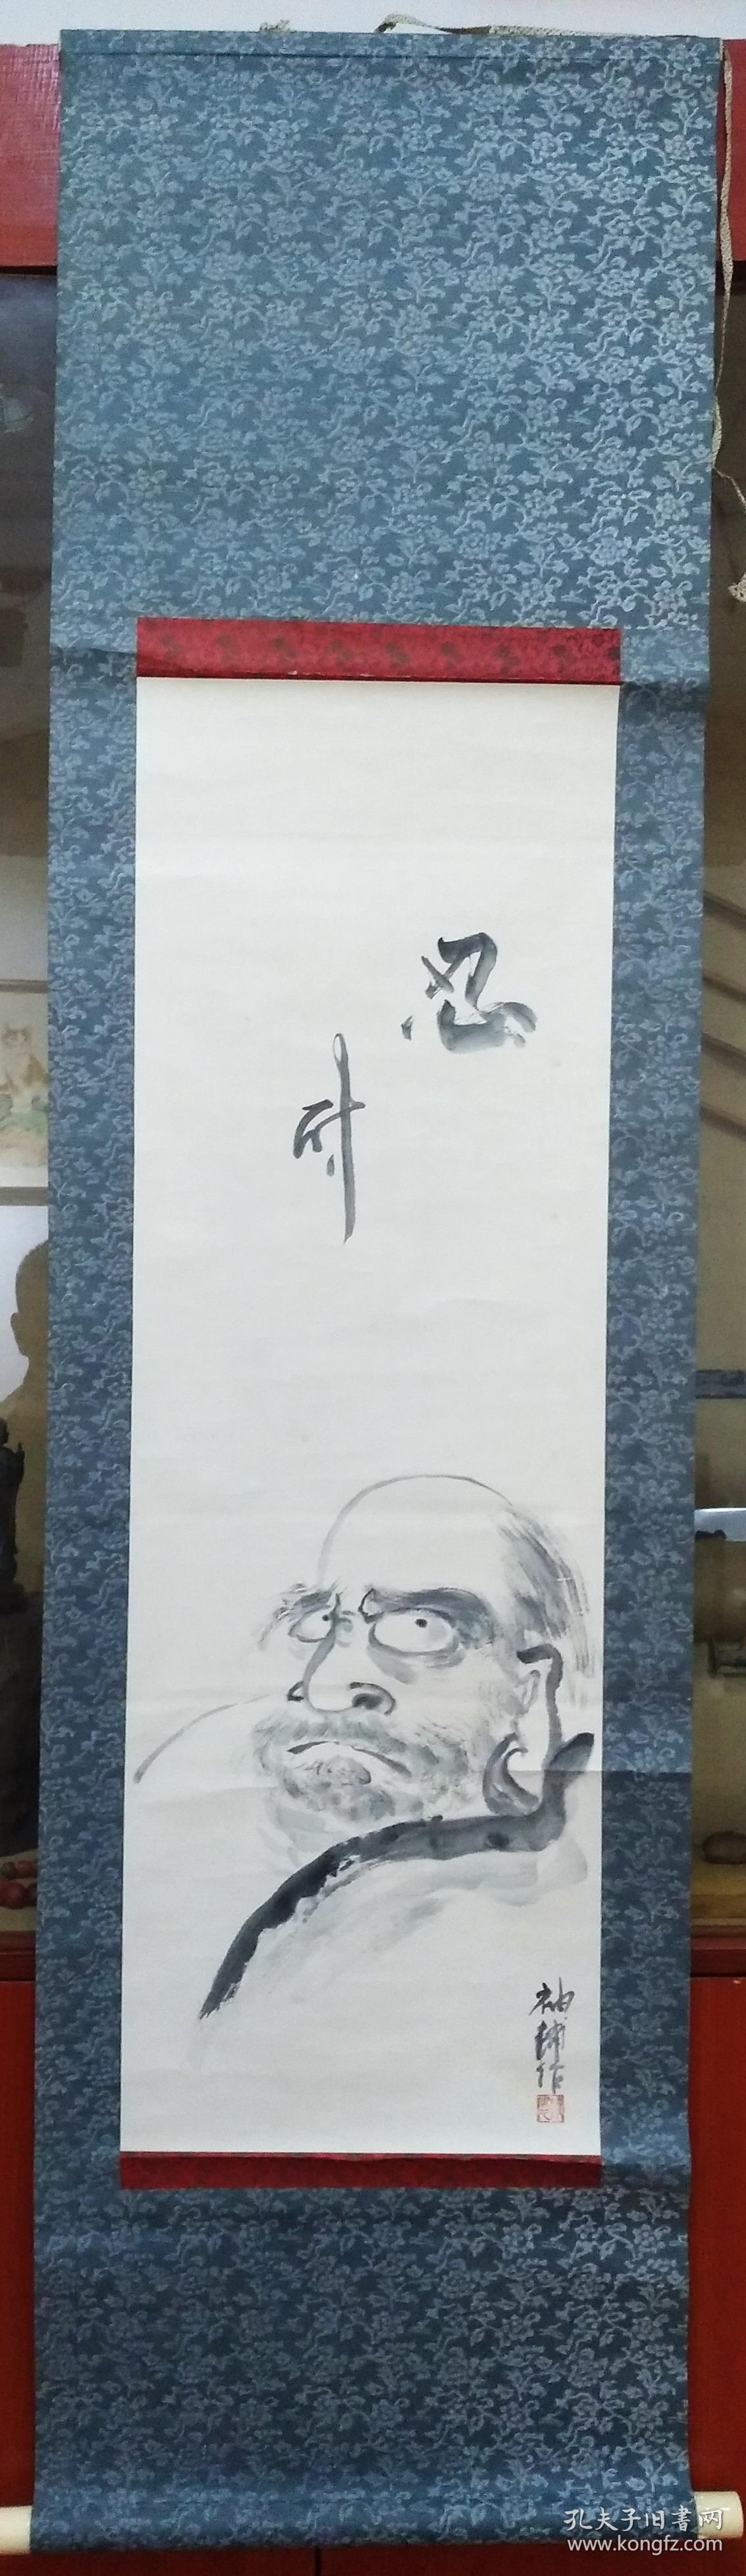 忍
耐
袖補作
孔夫子旧書网
www.kongfz.com